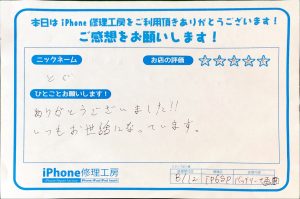 本日は iPhone 修理工房をご利用頂きありがとうございます！
ご感想をお願いします！
ニックネーム
お店の評価 ☆☆☆☆☆
ひとことお願いします！
ありがとうございました!!
いつもお世話になっています。
iPhone修理工房
8/12